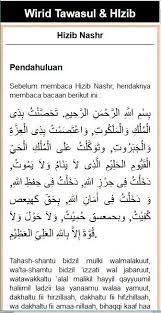 Wirid Tawasul & HIzib
Hizib Nashr
Pendahuluan
Sebelum membaca Hizib Nashr, hendaknya
membaca bacaan berikut ini :
بِسْمِ اللهِ الرَّحْمَنِ الرَّحِيْمِ. تَحَصَّنْتُ بِذِى
الْمُلْكِ وَالْمَلَكُوْتِ، وَاعْتَصَمْتُ بِذِى الْعِزَّةِ
وَالْجَبَرُوْتِ، وَتَوَكَّلْتُ عَلَى الْمَلِكِ الْحَيِّ
الْقَيُّوْمِ الْحَلِيْمِ الَّذِى لاَ يَنَامُ وَلاَ يَمُوْتُ،
دَخَلْتُ فِى حِرْزِ اللهِ، دَخَلْتُ فِى حِفْظِ اللهِ،
وَ دَخَلْتُ فِى أَمَانِ اللهِ، بِحَقِّ كهيعص
كُفِيْتُ، وبحمعسق حُمِيْتُ، وَلاَ حَوْلَ وَلاَ
قُوَّةَ إِلاَّ بِاللهِ الْعَلِيِّ الْعَظِيْمِ.
Tahash-shantu bidzil mulki walmalakuut,
wa'ta-shamtu bidzil 'izzati wal jabaruut,
watawakkaltu 'alal malikil hayyil qayyuumil
haliimil ladzii laa yanaamu walaa yamuut,
dakhaltu fii hirzillaah, dakhaltu fii hifzhillaah,
wa dakhaltu fii amaa-nillaah, bihaqqi kaaf haa